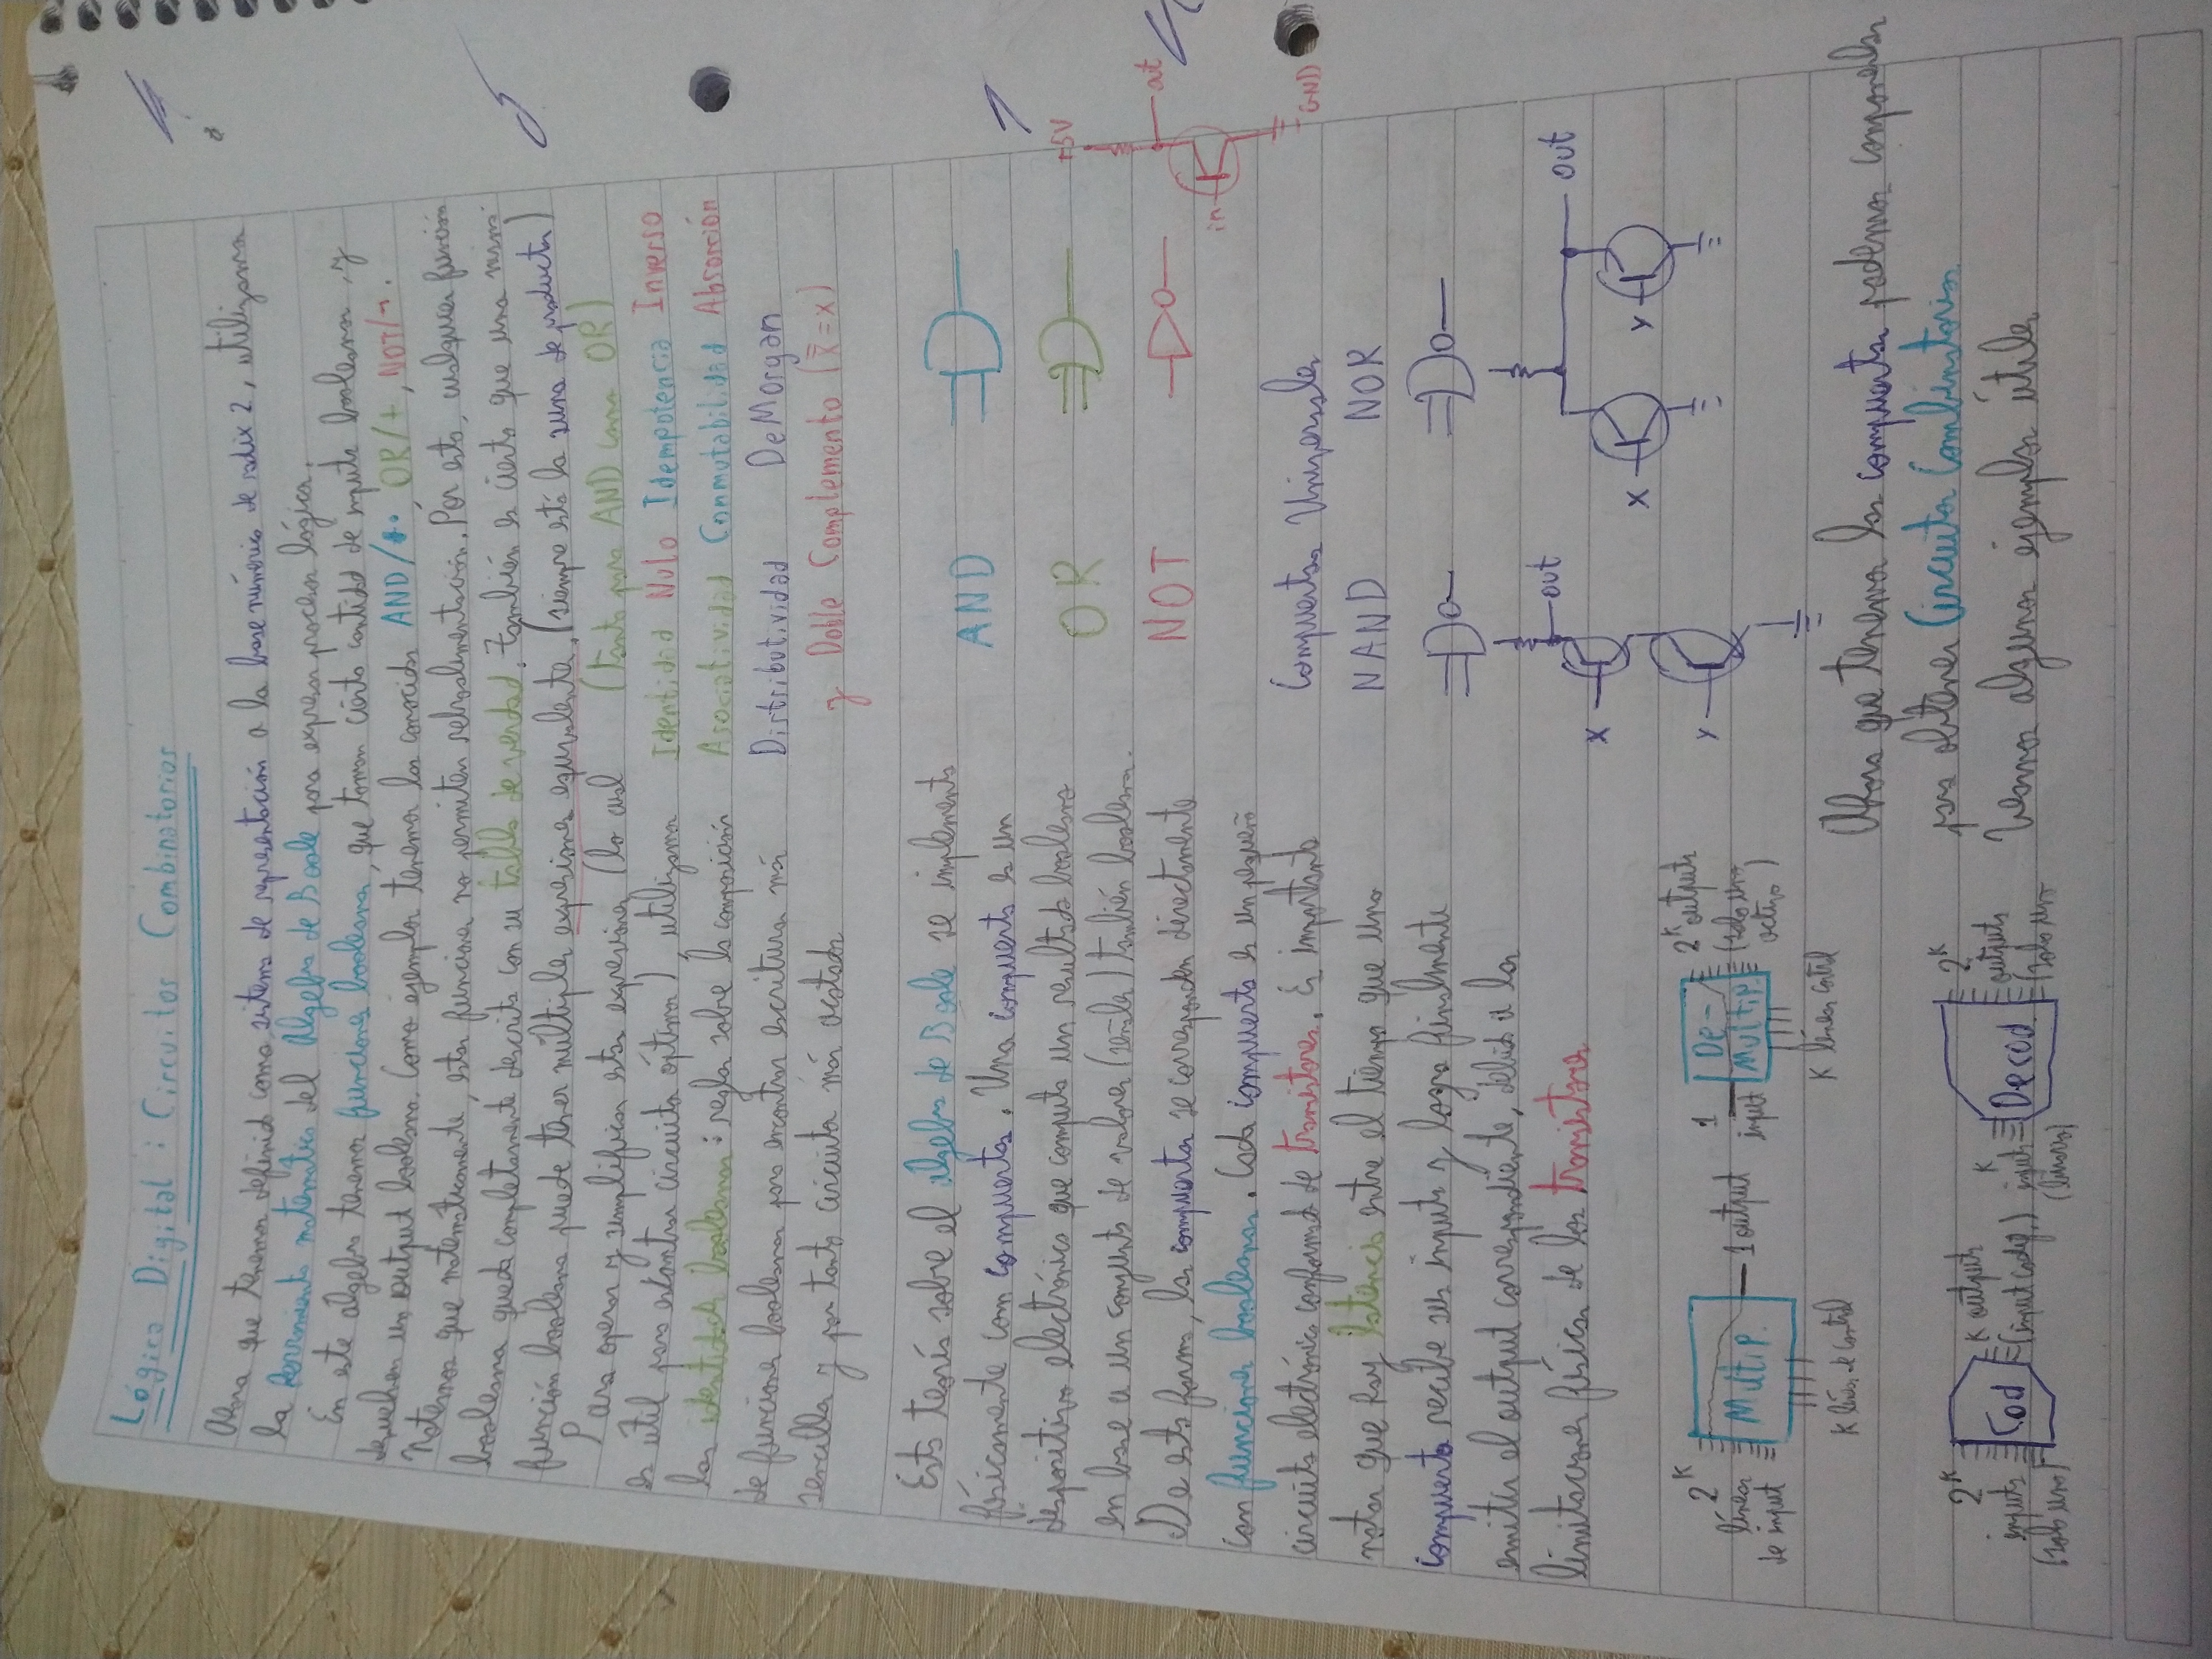 Lógica Digital : Circuitos Combinatorios
Ahora que tenemos definido como sistema de representación a la base numérica de radix 2, utilizamos
la herramienta matemática del Algebra de Boole para expresar procesos lógicos.
En este álgebra tenemos funciones booleanas, que toman cierta cantidad de inputs booleanos, y
devuelven un output booleano. Como ejemplos tenemos los conocidos AND/·, OR/+, NOT/¬.
Notemos que matemáticamente, estas funciones no permiten retroalimentación. Por esto, cualquier función
booleana queda completamente descrita con su tabla de verdad. También es cierto que una misma
función booleana puede tener múltiples expresiones equivalentes. (siempre está la suma de productos)
Para operar y simplificar estas expresiones (lo cual
es útil para encontrar circuitos óptimos), utilizamos
las identidades booleanas: reglas sobre la composición
de funciones booleanas para encontrar escrituras más
sencillas y por tanto circuitos más acotados
(tanto para AND como OR)
Identidad Nulo Idempotencia Inverso
Asociatividad Conmutabilidad Absorción
Distributividad DeMorgan
y Doble Complemento (x̿=x)
Esta teoría sobre el álgebra de Boole se implementa
físicamente con compuertas. Una compuerta es un
dispositivo electrónico que computa un resultado booleano
en base a un conjunto de valores (señales) también booleanos.
De esta forma, las compuertas se corresponden directamente
con funciones booleanas. Cada compuerta es un pequeño
circuito electrónico conformado de transistores. Es importante
notar que hay latencia entre el tiempo que una
compuerta recibe sus inputs y logra finalmente
emitir el output correspondiente, debido a las
limitaciones físicas de los transistores
AND
OR
NOT
+5V
out
in
GND
Compuertas Universales
NAND NOR
out
X
Y
out
X
Y
2^K
líneas
de input
Multip.
1 output
K líneas de control
1
input
De-
Multip.
2^K outputs
(solo uno
activo)
K líneas control
2^K
inputs
(solo uno)
Cod
K outputs
(input codif.)
K
inputs
(binario)
Decod.
2^K
outputs
(solo uno
Ahora que tenemos las compuertas podemos componerlas
para obtener Circuitos Combinatorios
Veamos algunos ejemplos útiles